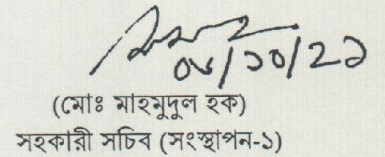 ০৬/১০/২১
(মোঃ মাহমুদুল হক)
সহকারী সচিব (সংস্থাপন-১)